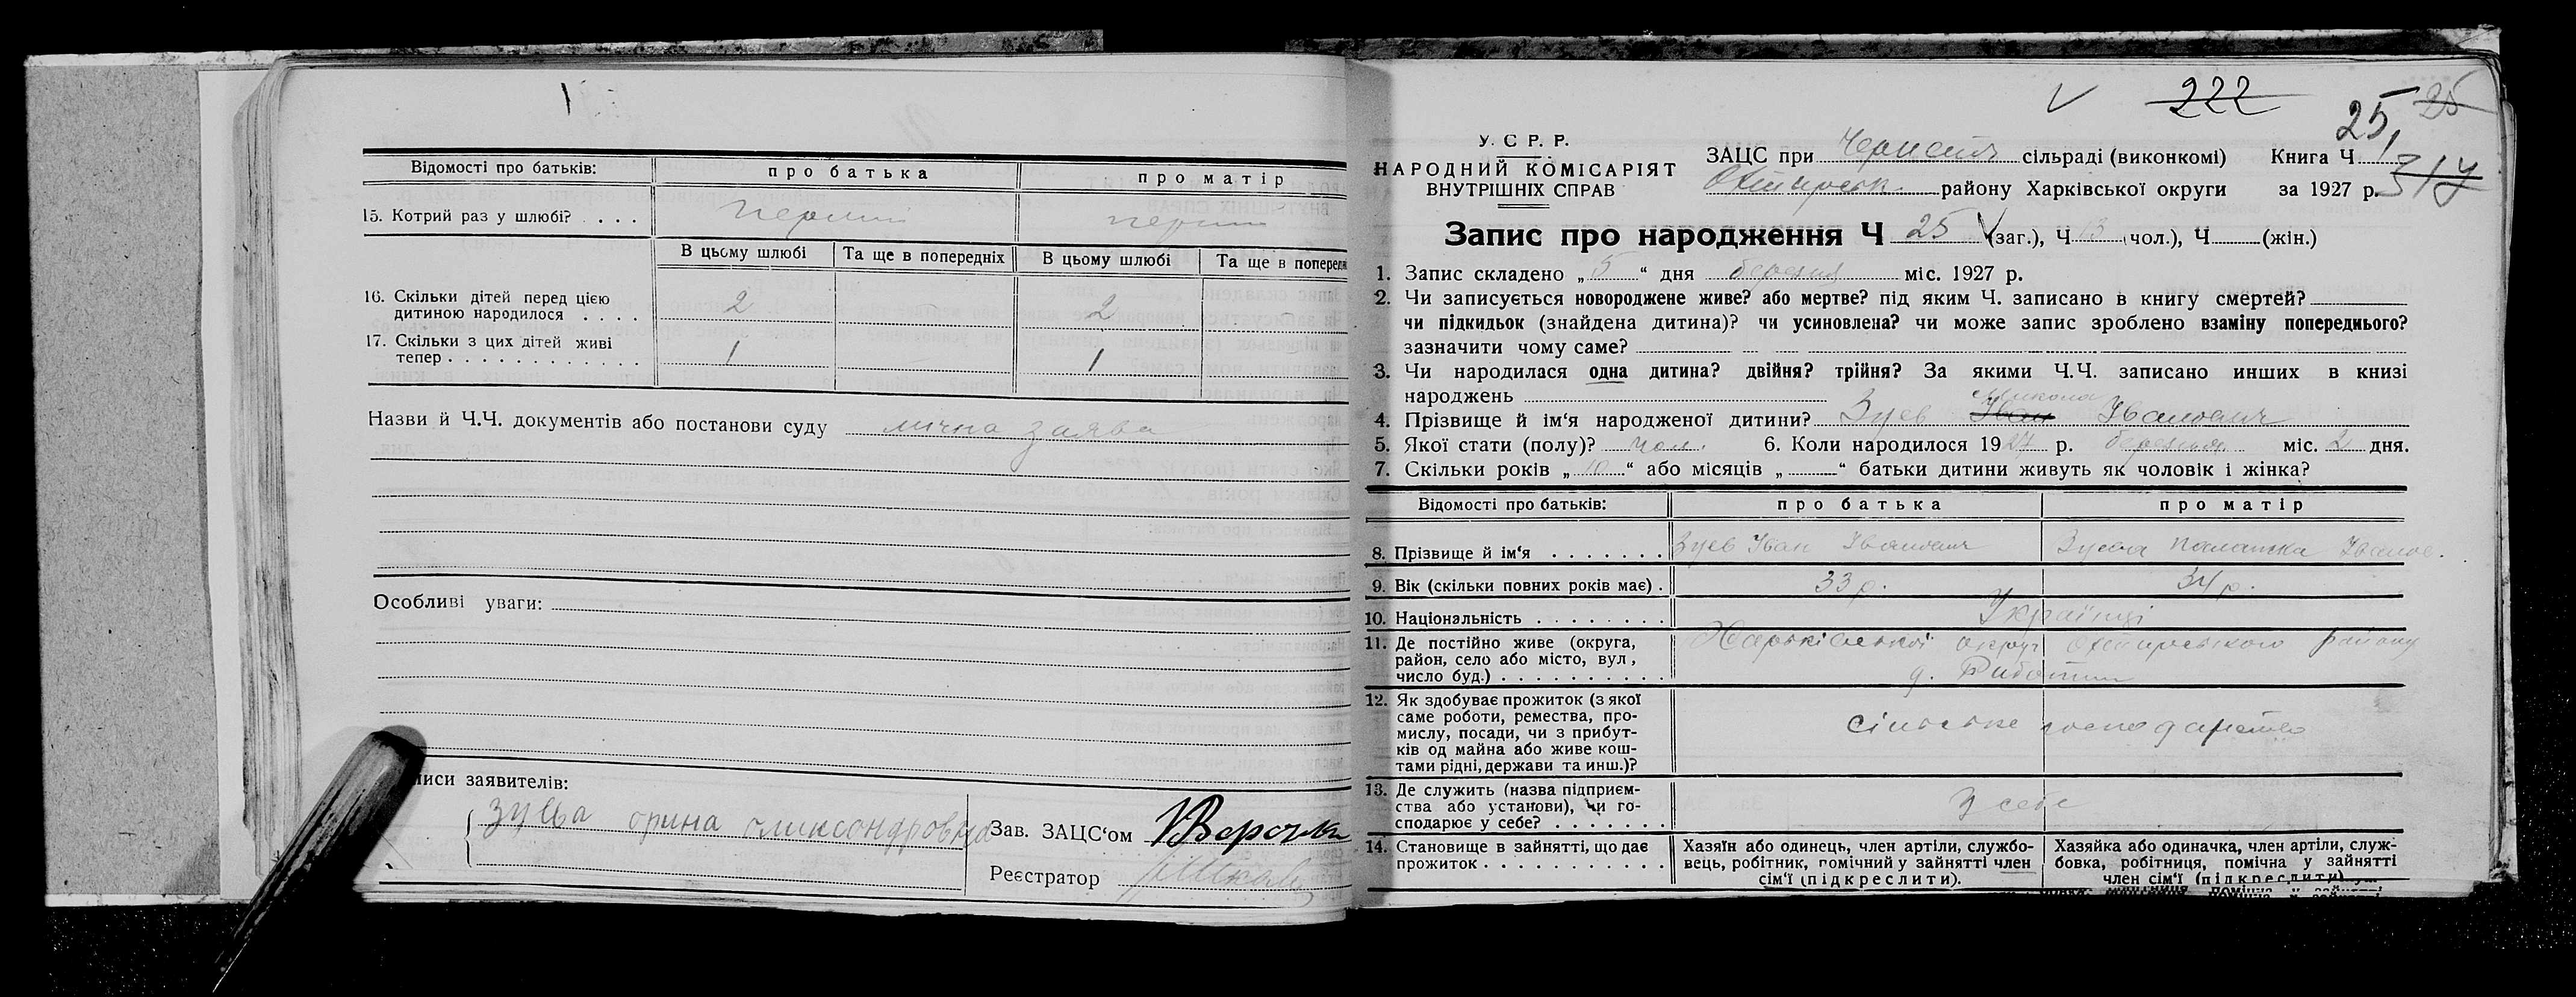 Відомості про батьків: про батька про матір
15. Котрий раз у шлюбі? . . . . перший перший
В цьому шлюбі Та ще в попередніх В цьому шлюбі Та ще в поперед
16. Скільки дітей перед цією
дитиною народилося . . . . 2 2
17. Скільки з цих дітей живі
тепер . . . . . . . . . . . . 1 1
Назви й Ч.Ч. документів або постанови суду заява
Особливі уваги:
писи заявителів:
Зуєва орина
Зав. ЗАЦС‘ом
Реєстратор
222
25
25,
317
У. С Р. Р.
НАРОДНИЙ КОМІСАРІЯТ
ВНУТРІШНІХ СПРАВ
ЗАЦС при сільраді (виконкомі) Книга Ч
району Харківської округи за 1927 р.
Запис про народження Ч 25 (заг.), Ч 13 (чол.), Ч (жін.)
1. Запис складено „ 5 “ дня березня міс. 1927 р.
2. Чи записується новороджене живе? або мертве? під яким Ч. записано в книгу смертей?
чи підкидьок (знайдена дитина)? чи усиновлена? чи може запис зроблено взаміну попереднього?
зазначити чому саме?
3. Чи народилася одна дитина? двійня? трійня? За якими Ч.Ч. записано инших в книзі
народжень
Микола
4. Прізвище й ім‘я народженої дитини? Зуев Іван Іванович
5. Якої стати (полу)? чол. 6. Коли народилося 1927 р. березня міс. 2 дня.
7. Скільки років „ 10 “ або місяців „ “ батьки дитини живуть як чоловік і жінка?
Відомості про батьків: про батька про матір
8. Прізвище й ім‘я . . . . . . . Зуев Іван Іванович Зуева Палашка Іванов.
9. Вік (скільки повних років має) . 33 р. 34 р.
10. Національність . . . . . . . . Українці
11. Де постійно живе (округа,
район, село або місто, вул,
число буд.) . . . . . . . . . . Харківської округи Охтирського району
12. Як здобуває прожиток (з якої
саме роботи, ремества, про-
мислу, посади, чи з прибут-
ків од майна або живе кош-
тами рідні, держави та инш.)? сільське господарство
13. Де служить (назва підприєм-
ства або установи), чи го-
сподарює у себе? . . . . . . . у себе
14. Становище в зайнятті, що дає
прожиток . . . . . . . . . . .
Хазяїн або одинець, член артіли, службо-
вець, робітник, помічний у зайнятті член
сім‘ї (підкреслити).
Хазяйка або одиначка, член артіли, служ-
бовка, робітниця, помічна у зайнятті
член сім‘ї (підкреслити)